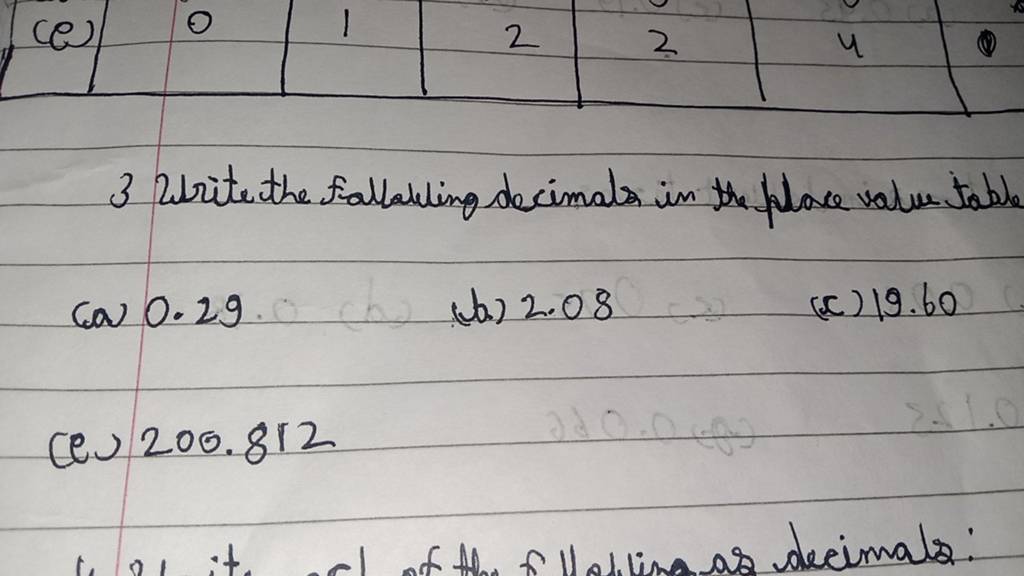 (e) 0 1 2 2 4 0
3 Write the following decimals in the place value table
(a) 0.29 (b) 2.08 (c) 19.60
(e) 200.812
of the following as decimals: